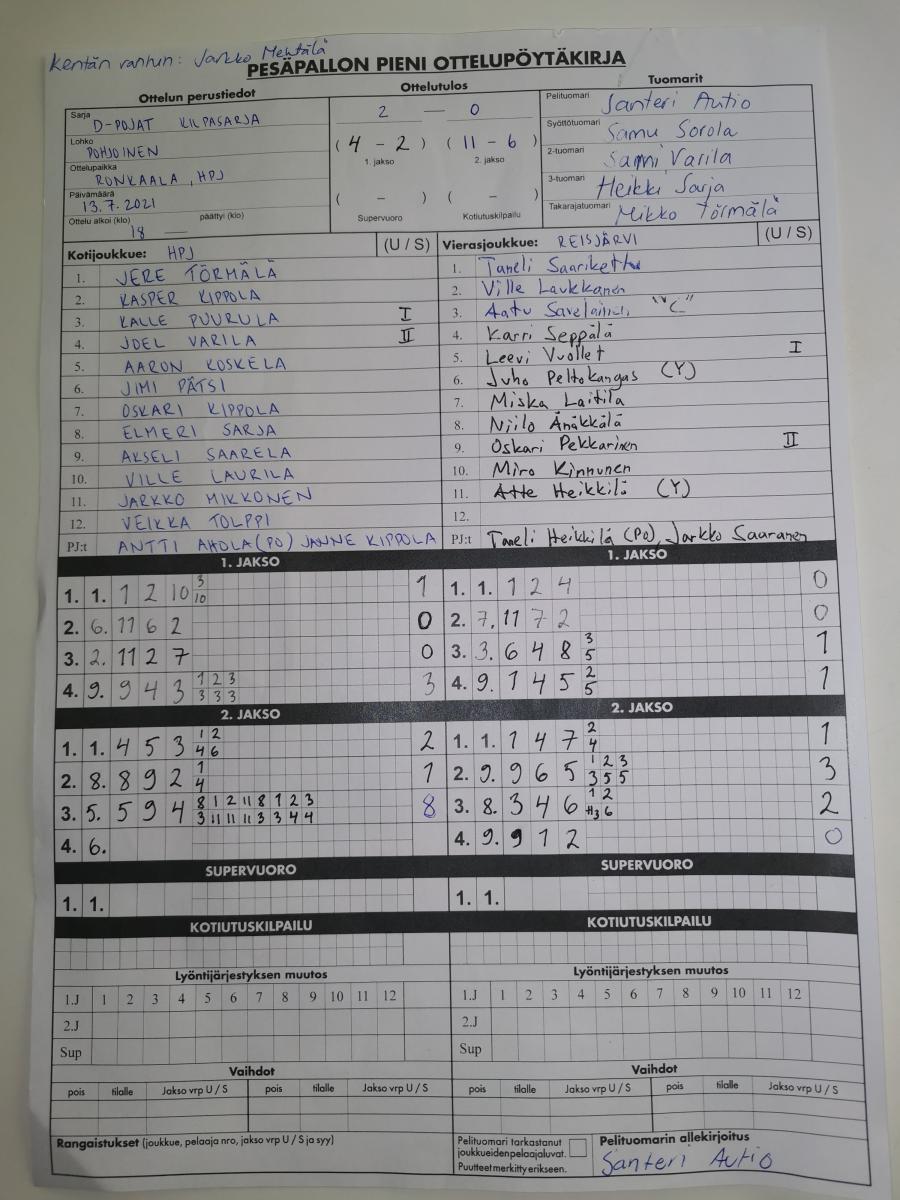 Kentän vanhin: Jarkko Mehtälä
PESÄPALLON PIENI OTTELUPÖYTÄKIRJA
Ottelun perustiedot
Ottelutulos
Tuomarit
Sarja D-POJAT KILPASARJA
Lohko POHJOINEN
Ottelupaikka RONKAALA, HPJ
Päivämäärä 13.7.2021
Ottelu alkoi (klo) 18 päättyi (klo) —
2 — 0
(4 - 2) (11 - 6)
1. jakso 2. jakso
( - ) ( - )
Supervuoro Kotiutuskilpailu
Pelituomari Santeri Autio
Syöttötuomari Samu Sorola
2-tuomari Sami Varila
3-tuomari Heikki Sarja
Takarajatuomari Mikko Törmälä
Kotijoukkue: HPJ (U / S)
1. JERE TÖRMÄLÄ
2. KASPER KIPPOLA
3. KALLE PUURULA I
4. JOEL VARILA II
5. AARON KOSKELA
6. JIMI PÄTSI
7. OSKARI KIPPOLA
8. ELMERI SARJA
9. AKSELI SAARELA
10. VILLE LAURILA
11. JARKKO MIKKONEN
12. VEIKKA TOLPPI
PJ:t ANTTI AHOLA (PO) JANNE KIPPOLA
Vierasjoukkue: REISJÄRVI (U / S)
1. Taneli Saariketttu
2. Ville Laukkanen
3. Aatu Savelainen "C"
4. Karri Seppälä
5. Leevi Vuollet I
6. Juho Peltokangas (Y)
7. Miska Laitila
8. Niilo Änäkkälä
9. Oskari Pekkarinen II
10. Miro Kinnunen
11. Atte Heikkilä (Y)
12.
PJ:t Taneli Heikkilä (PO), Jarkko Saaranen
1. JAKSO
1. 1. 1 2 10 3 1
10
2. 6. 11 6 2 0
3. 2. 11 2 7 0
4. 9. 9 4 3 1 2 3 3
3 3 3
1. JAKSO
1. 1. 1 2 4 0
2. 7. 11 7 2 0
3. 3. 6 4 8 3 1
5
4. 9. 1 4 5 2 1
5
2. JAKSO
1. 1. 4 5 3 1 2 2
4 6
2. 8. 8 9 2 1 1
4
3. 5. 5 9 4 8 1 2 11 8 1 2 3 8
3 11 11 11 3 3 4 4
4. 6.
2. JAKSO
1. 1. 1 4 7 2 1
4
2. 9. 9 6 5 1 2 3 3
3 5 5
3. 8. 3 4 6 1 2 2
3 6
4. 9. 9 1 2 0
SUPERVUORO
1. 1.
SUPERVUORO
1. 1.
KOTIUTUSKILPAILU
KOTIUTUSKILPAILU
Lyöntijärjestyksen muutos
1.J 1 2 3 4 5 6 7 8 9 10 11 12
2.J
Sup
Lyöntijärjestyksen muutos
1.J 1 2 3 4 5 6 7 8 9 10 11 12
2.J
Sup
Vaihdot
pois tilalle Jakso vrp U / S pois tilalle Jakso vrp U / S
Vaihdot
pois tilalle Jakso vrp U / S pois tilalle Jakso vrp U / S
Rangaistukset (joukkue, pelaaja nro, jakso vrp U / S ja syy)
Pelituomari tarkastanut
joukkueidenpelaajaluvat.
Puutteetmerkitty erikseen.
Pelituomarin allekirjoitus
Santeri Autio